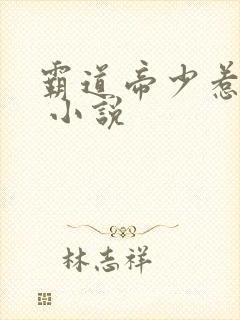 霸道帝少惹
小説
林志祥